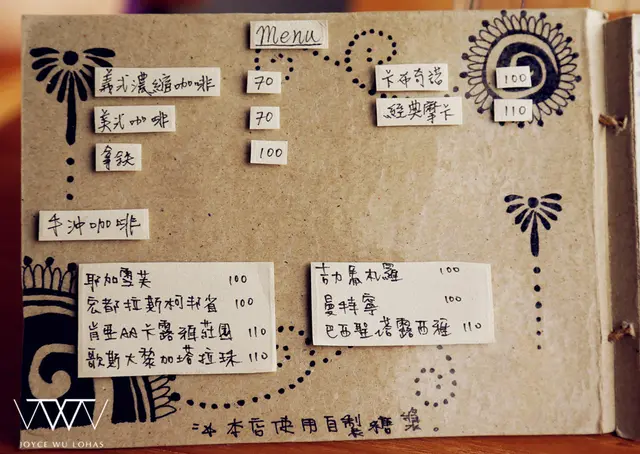 Menu
義式濃縮咖啡 70
卡布奇諾 100
美式咖啡 70
經典摩卡 110
拿鐵 100
手沖咖啡
耶加雪芙 100
宏都拉斯柯邦省 100
肯亞AA卡露雅莊園 110
歌斯大黎加塔拉珠 110
吉力馬札羅 100
曼特寧 100
巴西聖塔露西雅 110
本店使用自製糖漿。
JOYCE WU LOHAS